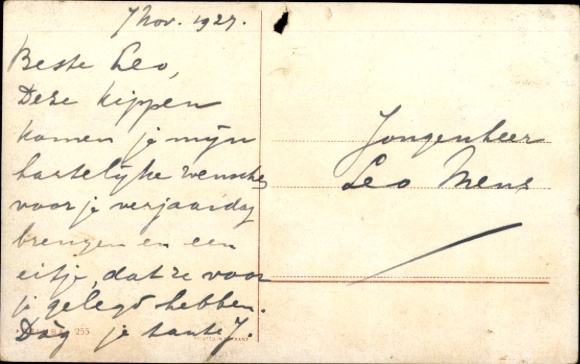 7 Nov. 1927.
Beste Leo,
Deze kippen
komen je mijn
hartelijke wensches
voor je verjaardag
brengen en een
eitje, dat ze voor
je gelegd hebben.
Dag je tante J.
255
Jongenheer
Leo Mens